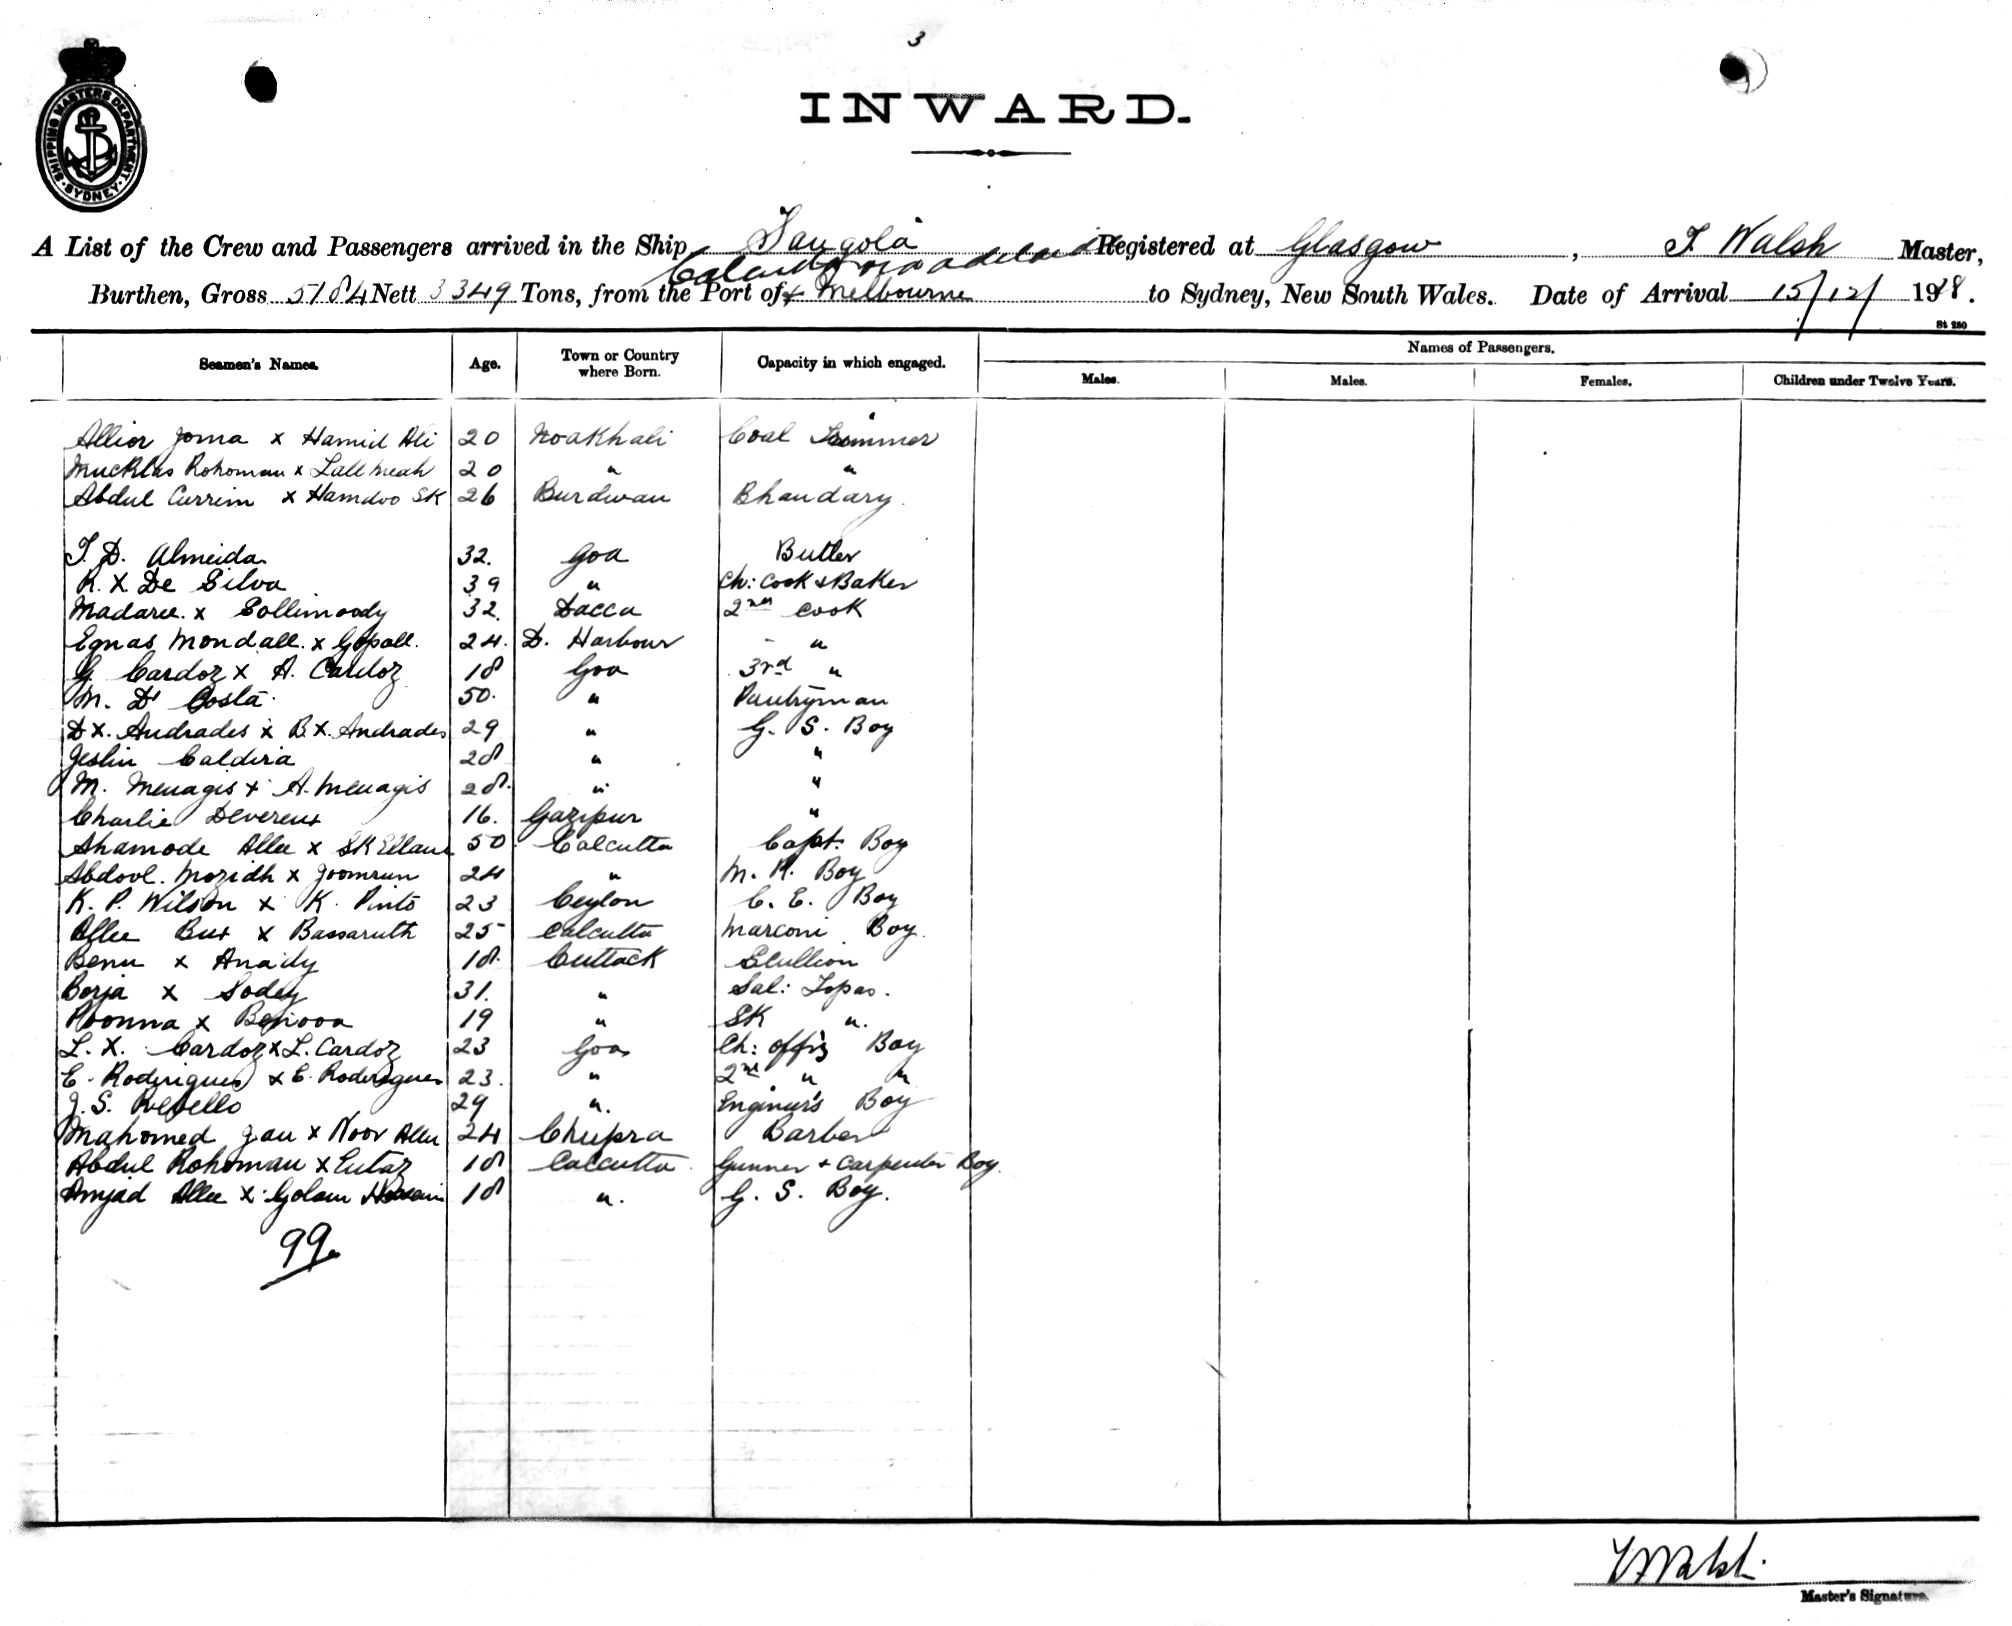 3
SHIPPING MASTERS DEPARTMENT · SYDNEY ·
INWARD.
A List of the Crew and Passengers arrived in the Ship Sangola Registered at Glasgow, T. Walsh Master,
Calcutta via Adelaide
Burthen, Gross 5184 Nett 3349 Tons, from the Port of & Melbourne to Sydney, New South Wales. Date of Arrival 15/12/ 1918.
St 280
Seamen's Names. Age. Town or Country where Born. Capacity in which engaged. Names of Passengers.
Males. Males. Females. Children under Twelve Years.
Allior Joma x Hamid Ali 20 Noakhali Coal Trimmer
Mucklas Rohoman x Lall Meah 20 " "
Abdul Currim x Hamdoo SK 26 Burdwan Bhandary.
T. D. Almeida 32. Goa Butler
R. X De Silva 39 " Ch: Cook & Baker
Madaree. x Sollimoody 32. Dacca 2nd Cook
Egnas Mondall. x Gopall. 24. D. Harbour - "
G. Cardoz x A. Cardoz 18 Goa 3rd "
M. D' Costa 50. " Pantryman
D X. Andrades x B X. Andrades 29 " G. S. Boy
Jeslin Caldira 28 " "
M. Menagis x A. Menagis 28. " "
Charlie Devereux 16. Gazipur "
Ahamode Allee x SK Ellam 50 Calcutta Capt. Boy
Abdool. Mozidh x Joomrun 24 " M. R. Boy
K. P. Wilson x K. Pinto 23 Ceylon C. E. Boy
Allee Bux x Bassaruth 25 Calcutta Marconi Boy.
Benu x Anady 18. Cuttack Scullion
Borja x Sodey 31. " Sal: Topas.
Poonna x Benooa 19 " SK ".
L. X. Cardoz x L. Cardoz 23 Goa Ch: Offrs Boy
E. Roderigues x E. Roderigues 23. " 2nd " "
J. S. Rebello 29 ". Engineer's Boy
Mahomed Jan x Noor Allee 24 Chupra Barber
Abdul Rohoman x Entaz 18 Calcutta Gunner & Carpenter Boy.
Amjad Allee x Golam Hossain 18 ". G. S. Boy.
99
T Walsh
Master's Signature.